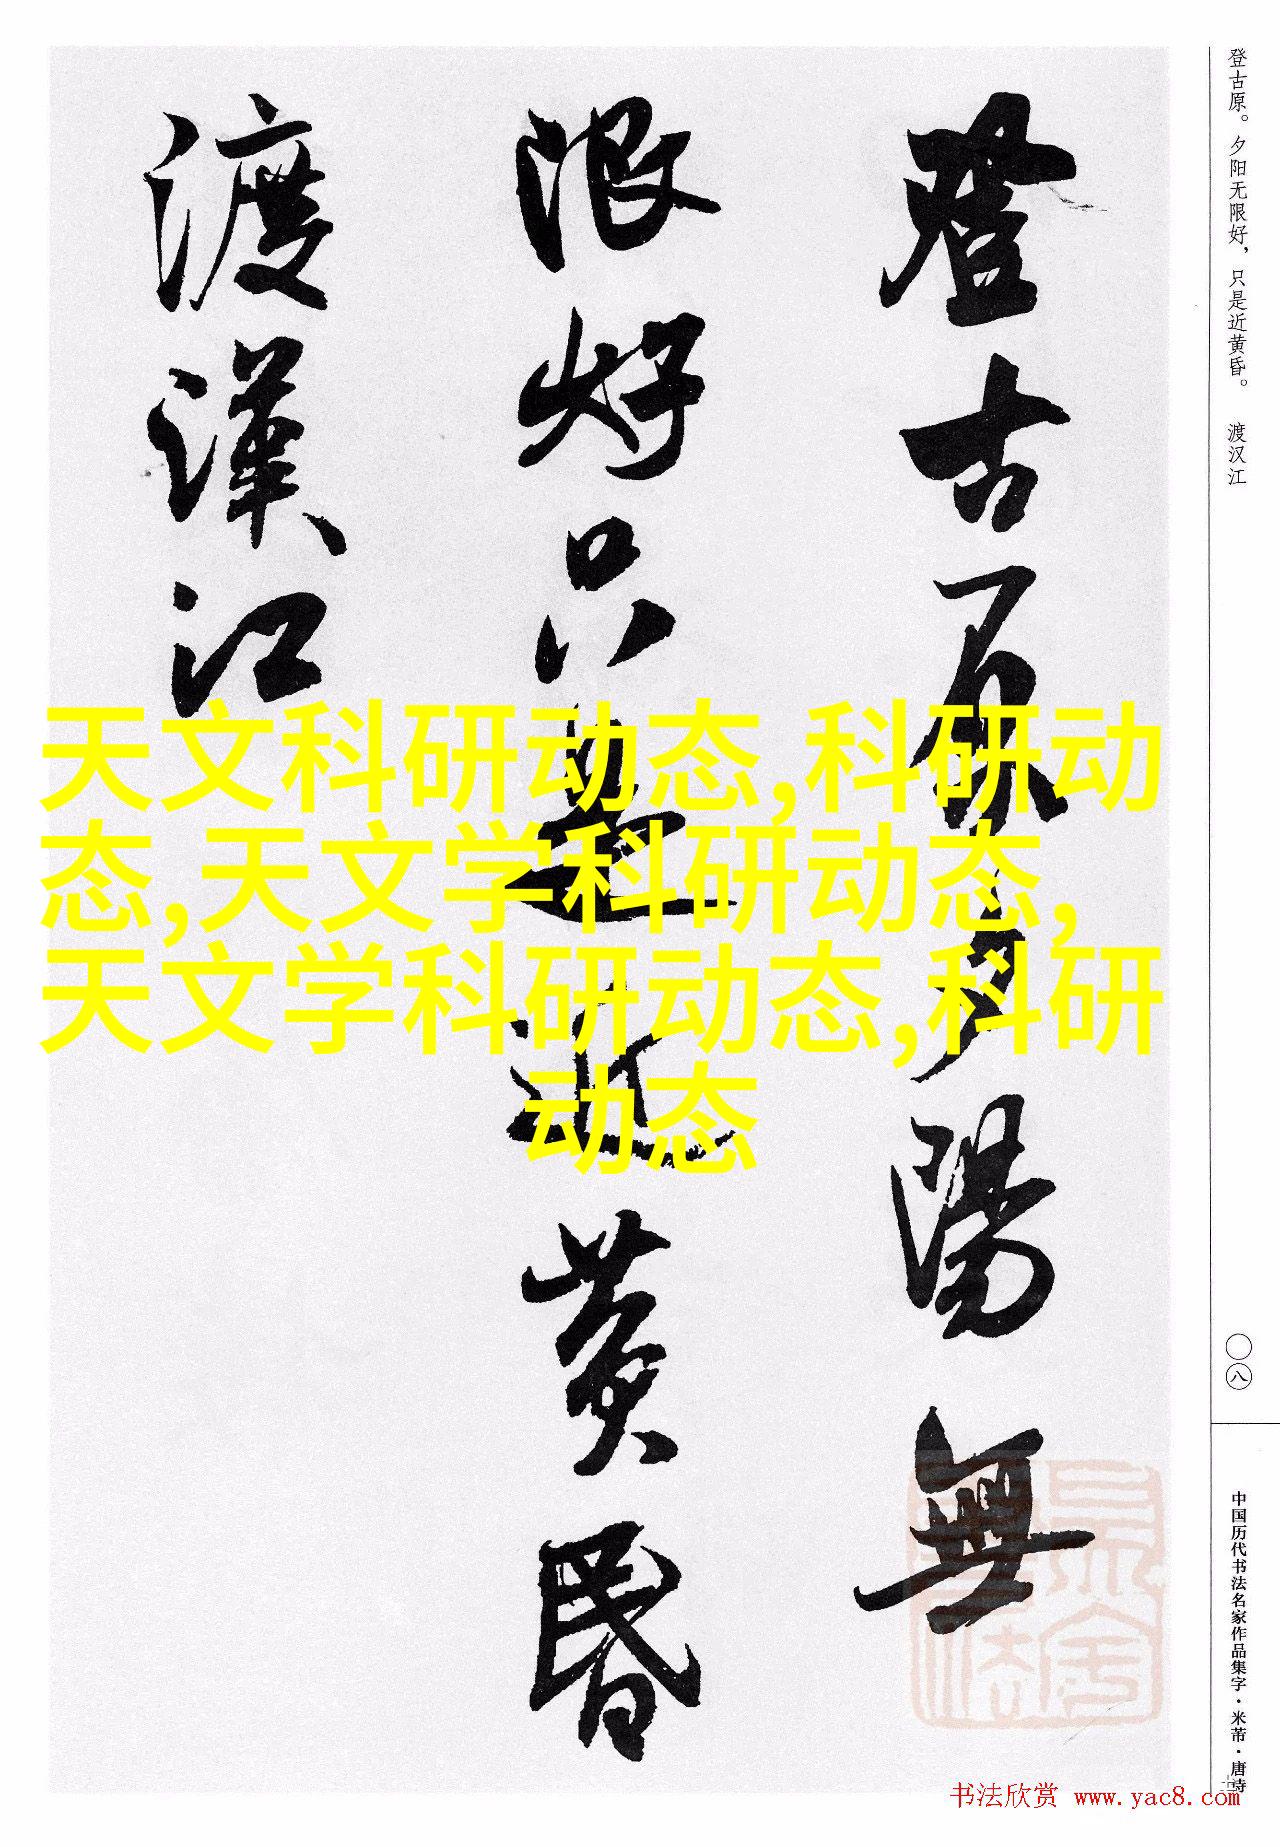 登古原。夕阳无限好，只是近黄昏。 渡汉江
登古原夕陽無
限好只是近黄昏
渡漢江
天文科研动态,科研动
态,天文学科研动态,
天文学科研动态,科研
动态
〇八
中国历代书法名家作品集字·米芾·唐诗
书法欣赏 www.yac8.com